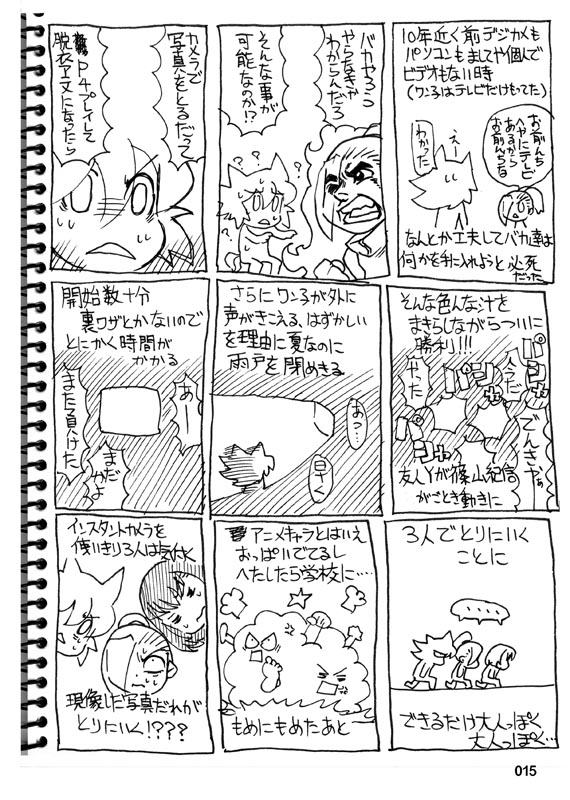 10年近く前デジカメも
パソコンもましてや個人で
ビデオもない時
(ワン子はテレビだけもってた)
お前んち
ヘヤにテレビ
あるから
お前んちな
え
わかった
なんとか工夫してバカ達は
何かを手に入れようと必死
だった
バカやろうっ
やらなきゃ
わからんだろ
そんな事が
可能なのか!?
???
カメラで
写真をとるだって
プレイして
脱衣
になったら
そんな色んな汁を
まきちらしながらついに
勝利!!!
パシャ
パシャ
パシャ
今だ
やった
でんきゃぁ
友人Yが篠山紀信
がごとき動きに
さらにワン子が外に
声がきこえる、はずかしい
を理由に夏なのに
雨戸を閉めきる
あっ…
早く
開始数十分
裏ワザとかないので
とにかく時間が
かかる
あー
また負けた
まだ
かよ
3人でとりにいく
ことに
......
できるだけ大人っぽく
大人っぽく…
アニメキャラとはいえ
おっぱいでてるし
へたしたら学校に‥‥
もめにもめたあと
インスタントカメラを
使いきり3人は気付く
現像した写真だれが
とりにいく!???
015